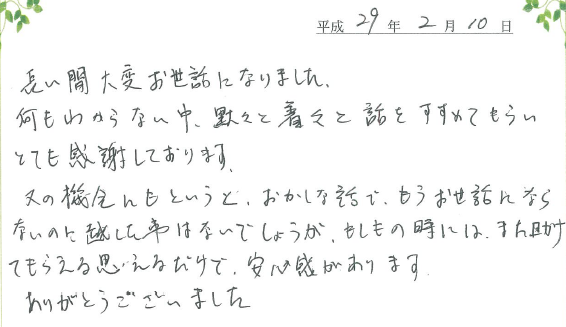 平成 29 年 2 月 10 日
長い間大変お世話になりました、
何もわからない中、黙々と着々と話をすすめてもらい
とても感謝しております。
又の機会にもというと、おかしな話で、もうお世話になら
ないのに越した事はないでしょうが、もしもの時には、また助け
てもらえる思えるだけで、安心感があります。
ありがとうございました